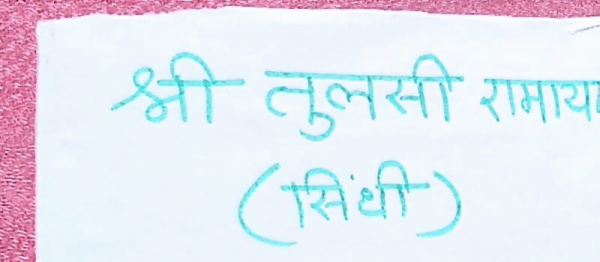 श्री तुलसी रामाया
(सिंधी)